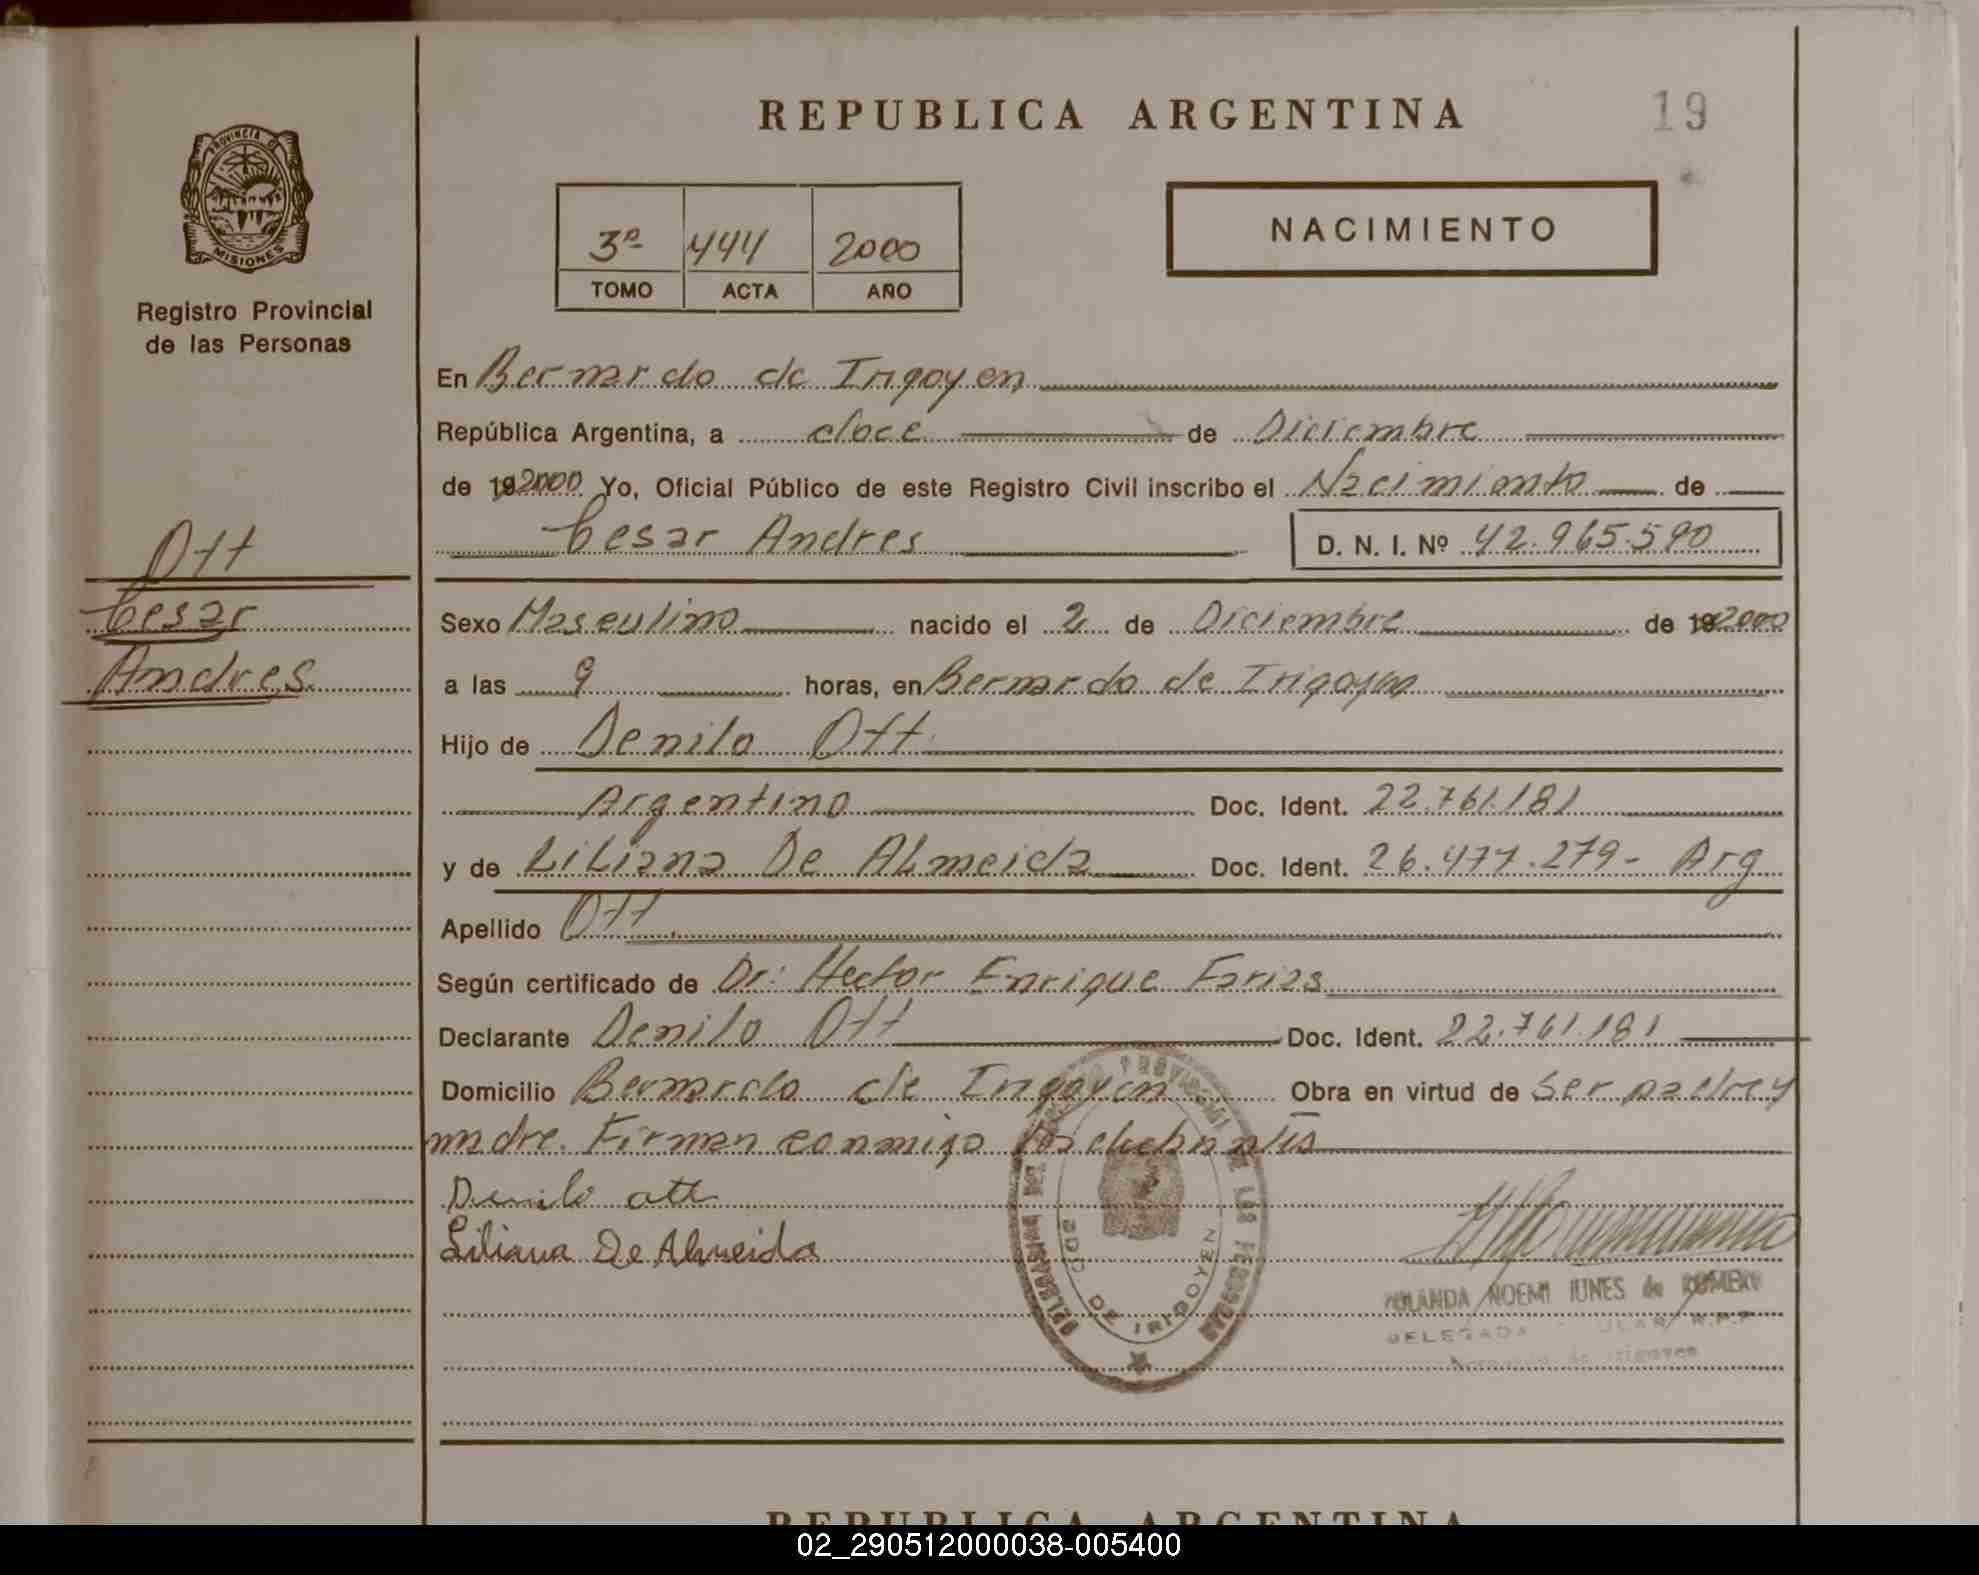 REPUBLICA ARGENTINA
19
PROVINCIA DE
MISIONES
Registro Provincial
de las Personas
3º 444 2000
TOMO ACTA AÑO
NACIMIENTO
En Bernardo de Irigoyen
República Argentina, a doce de Diciembre
de 192000 Yo, Oficial Público de este Registro Civil inscribo el Nacimiento de
Cesar Andres D. N. I. Nº 42.965.590
Ott
Cesar
Andres
Sexo Masculino nacido el 2 de Diciembre de 192000
a las 9 horas, en Bernardo de Irigoyen
Hijo de Denilo Ott
Argentino Doc. Ident. 22.761.181
y de Liliana De Almeida Doc. Ident. 26.477.279- Arg
Apellido Ott
Según certificado de Dr: Hector Enrique Farias
Declarante Denilo Ott Doc. Ident. 22.761.181
Domicilio Bernardo de Irigoyen Obra en virtud de Ser padre y
madre. Firman conmigo
Denilo ott
Liliana De Almeida
PROVINCIAL DE LAS PERSONAS
BDO. DE IRIGOYEN
YOLANDA NOEMI IUNES de ROMERO
DELEGADA TITULAR R.P.P
Bernardo de Irigoyen
REPUBLICA ARGENTINA
02_290512000038-005400